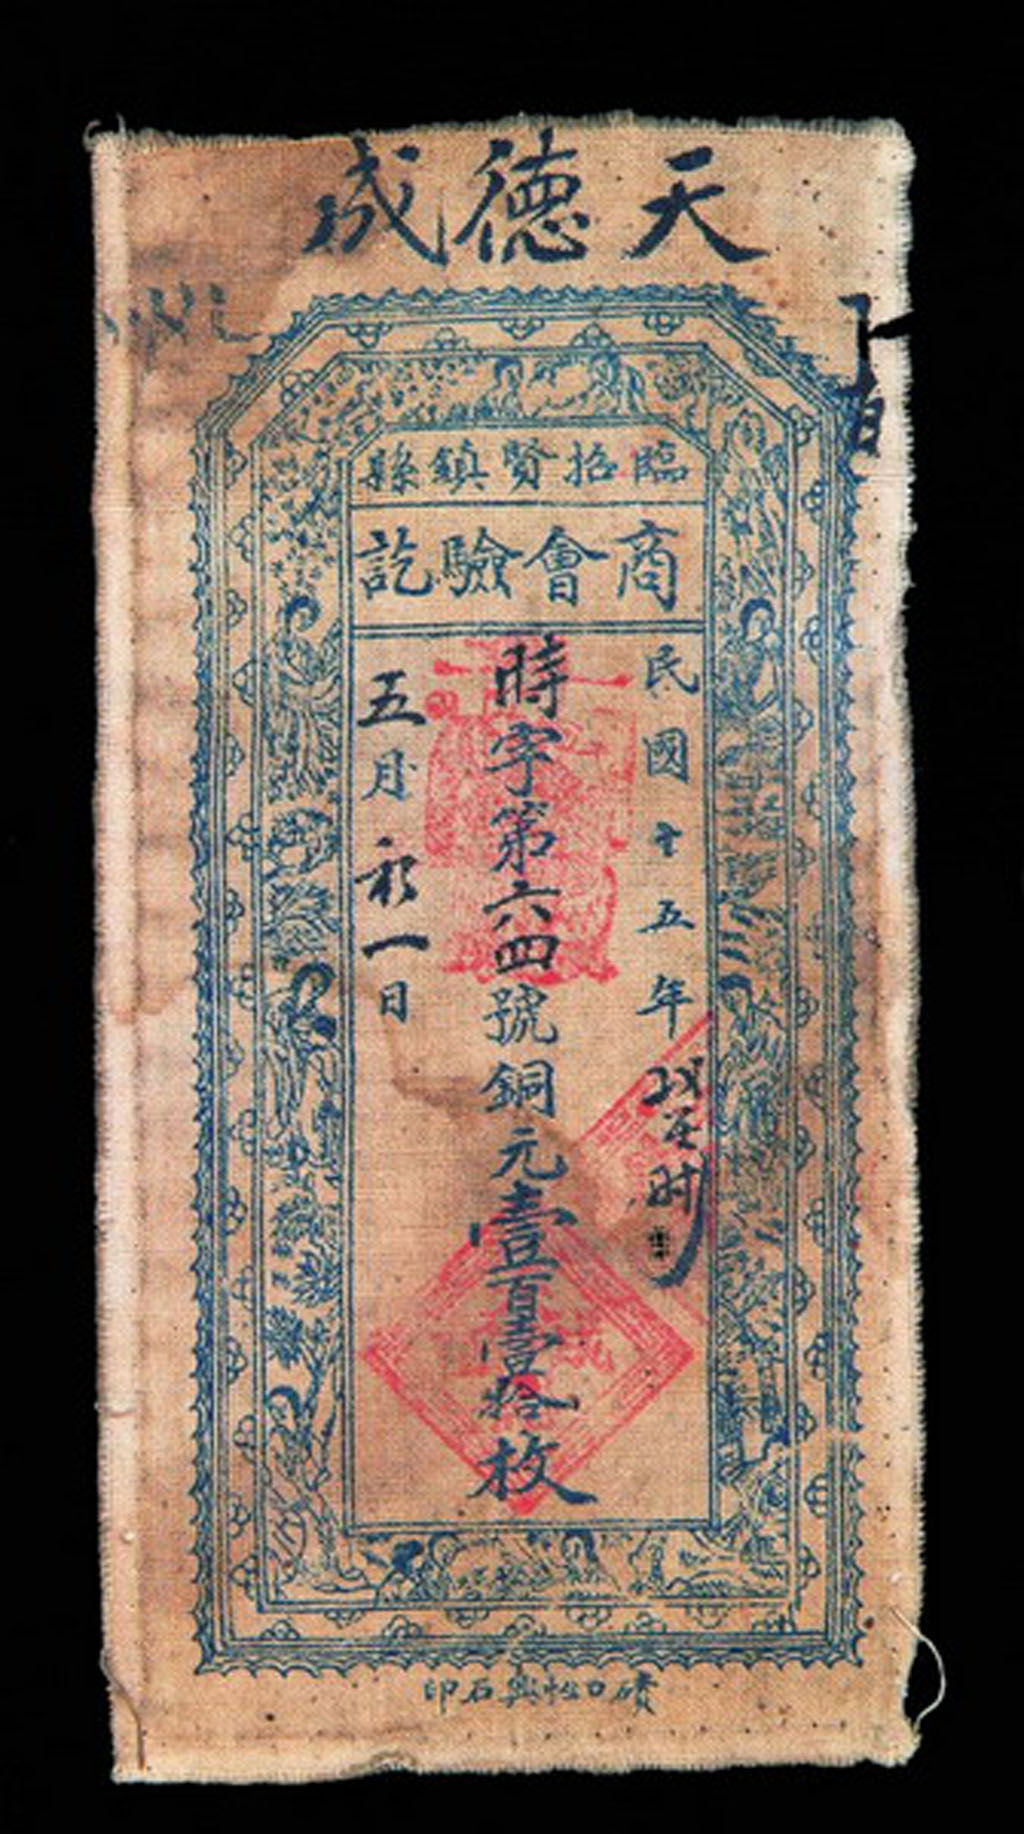 天德成
臨招賢鎮縣
商會驗訖
民國十五年
時字第六四號銅元壹百壹拾枚
五月初一日
磧口怡興石印